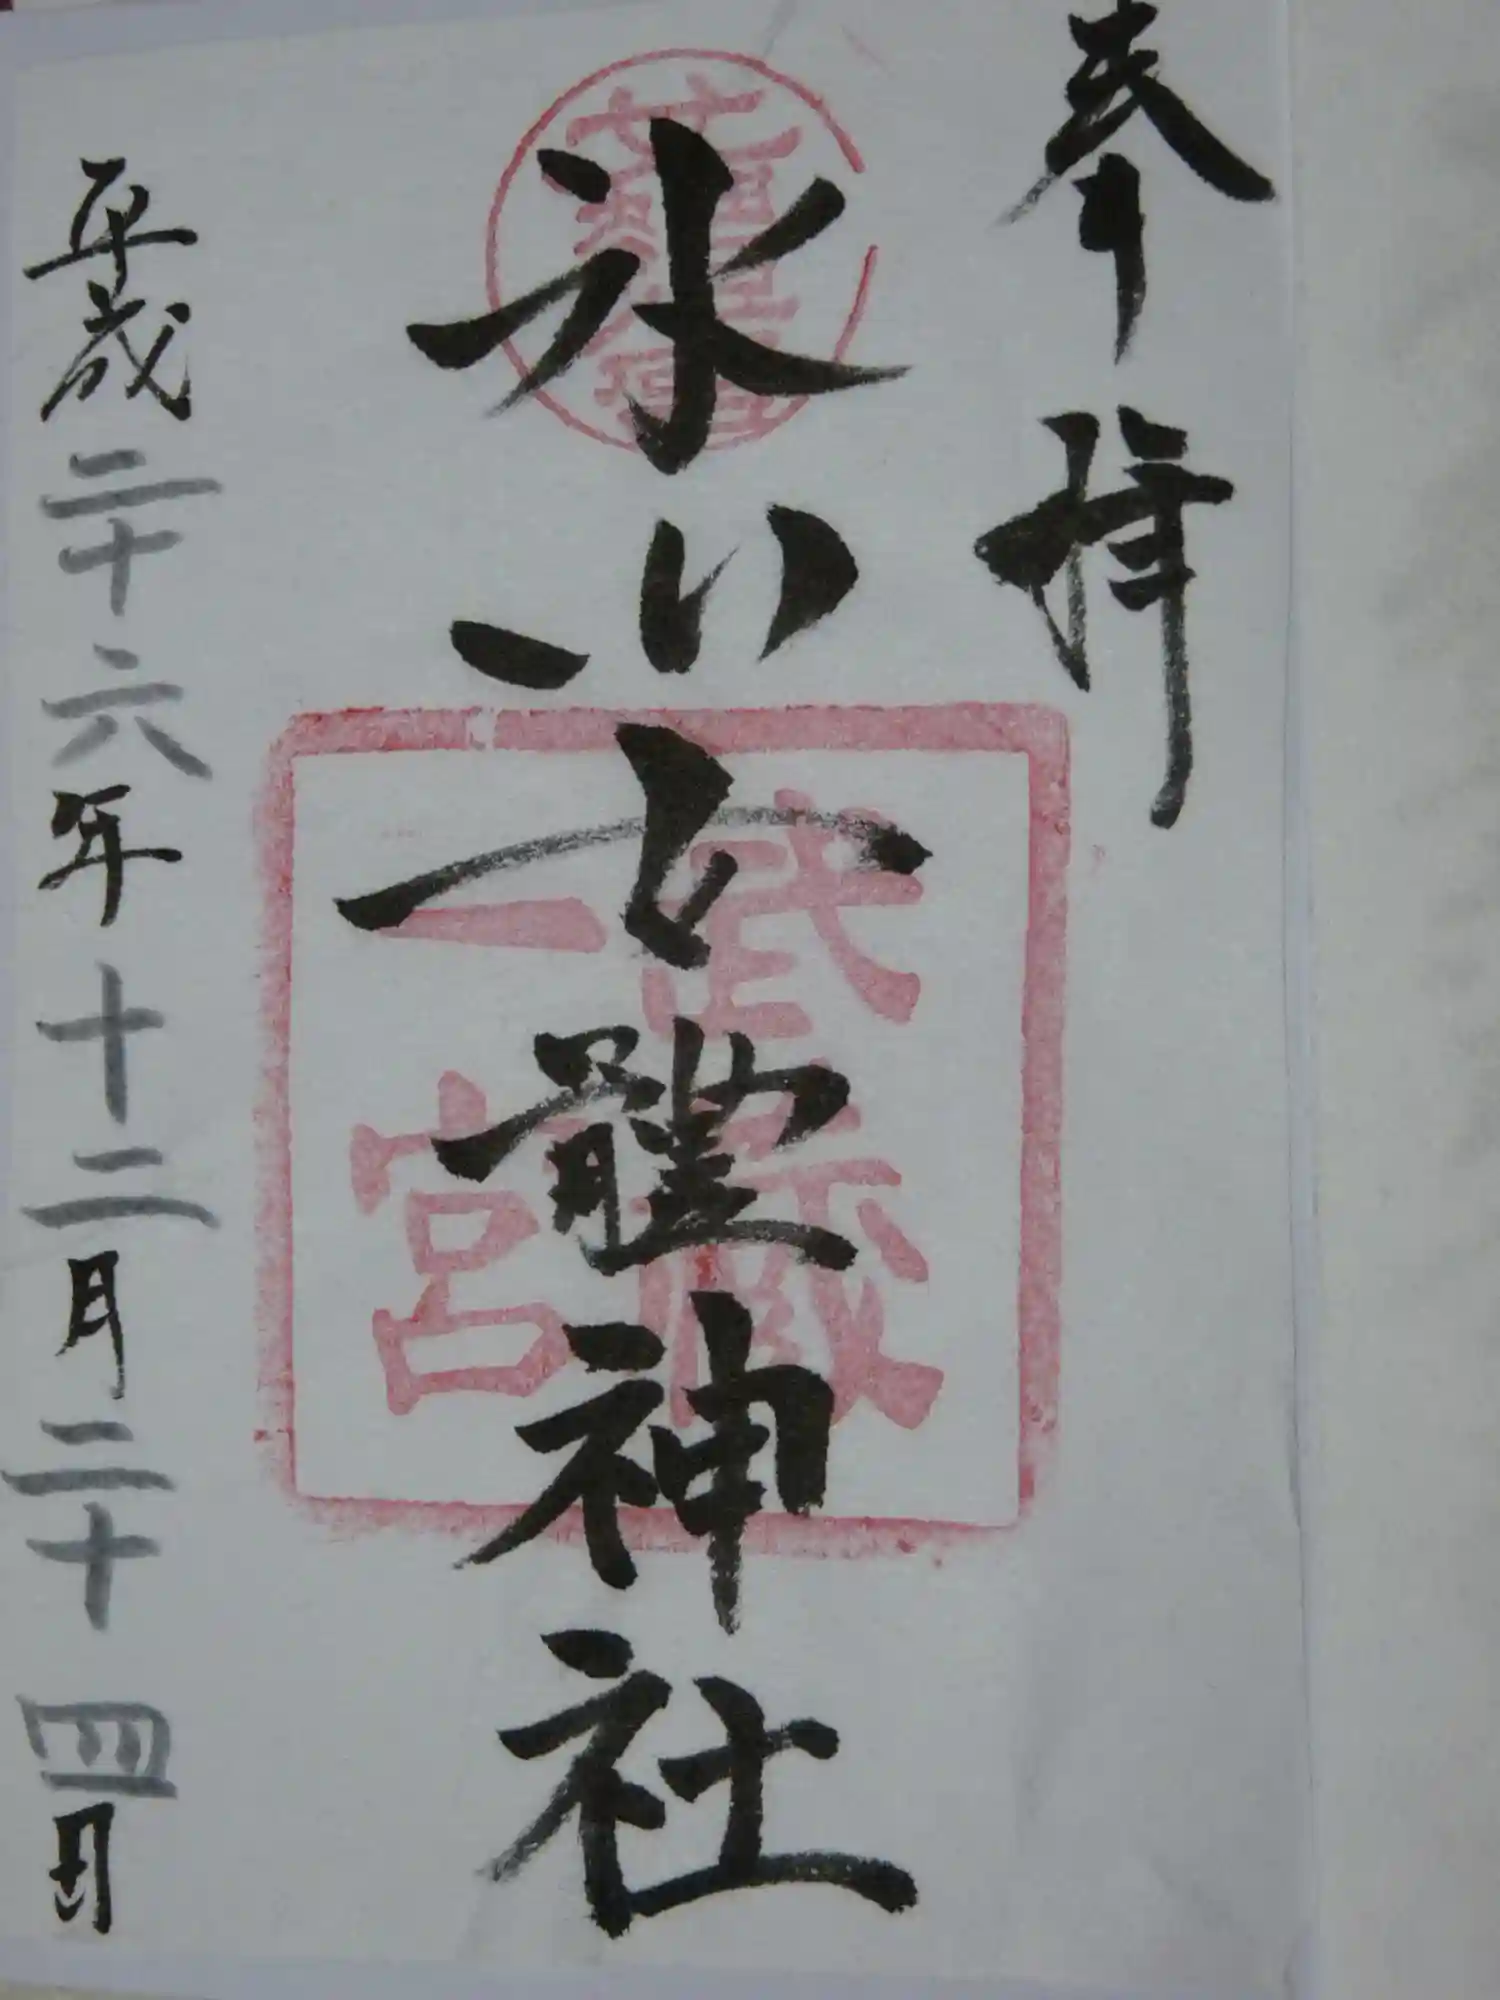 奉拝
氷川女體神社
武藏
一宮
平成二十六年十二月二十四日